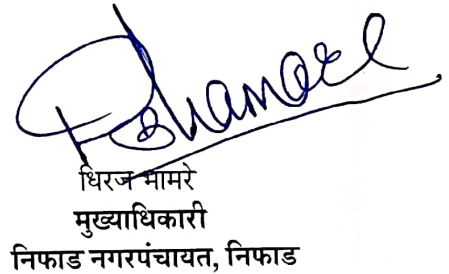 धिरज भामरे
मुख्याधिकारी
निफाड नगरपंचायत, निफाड